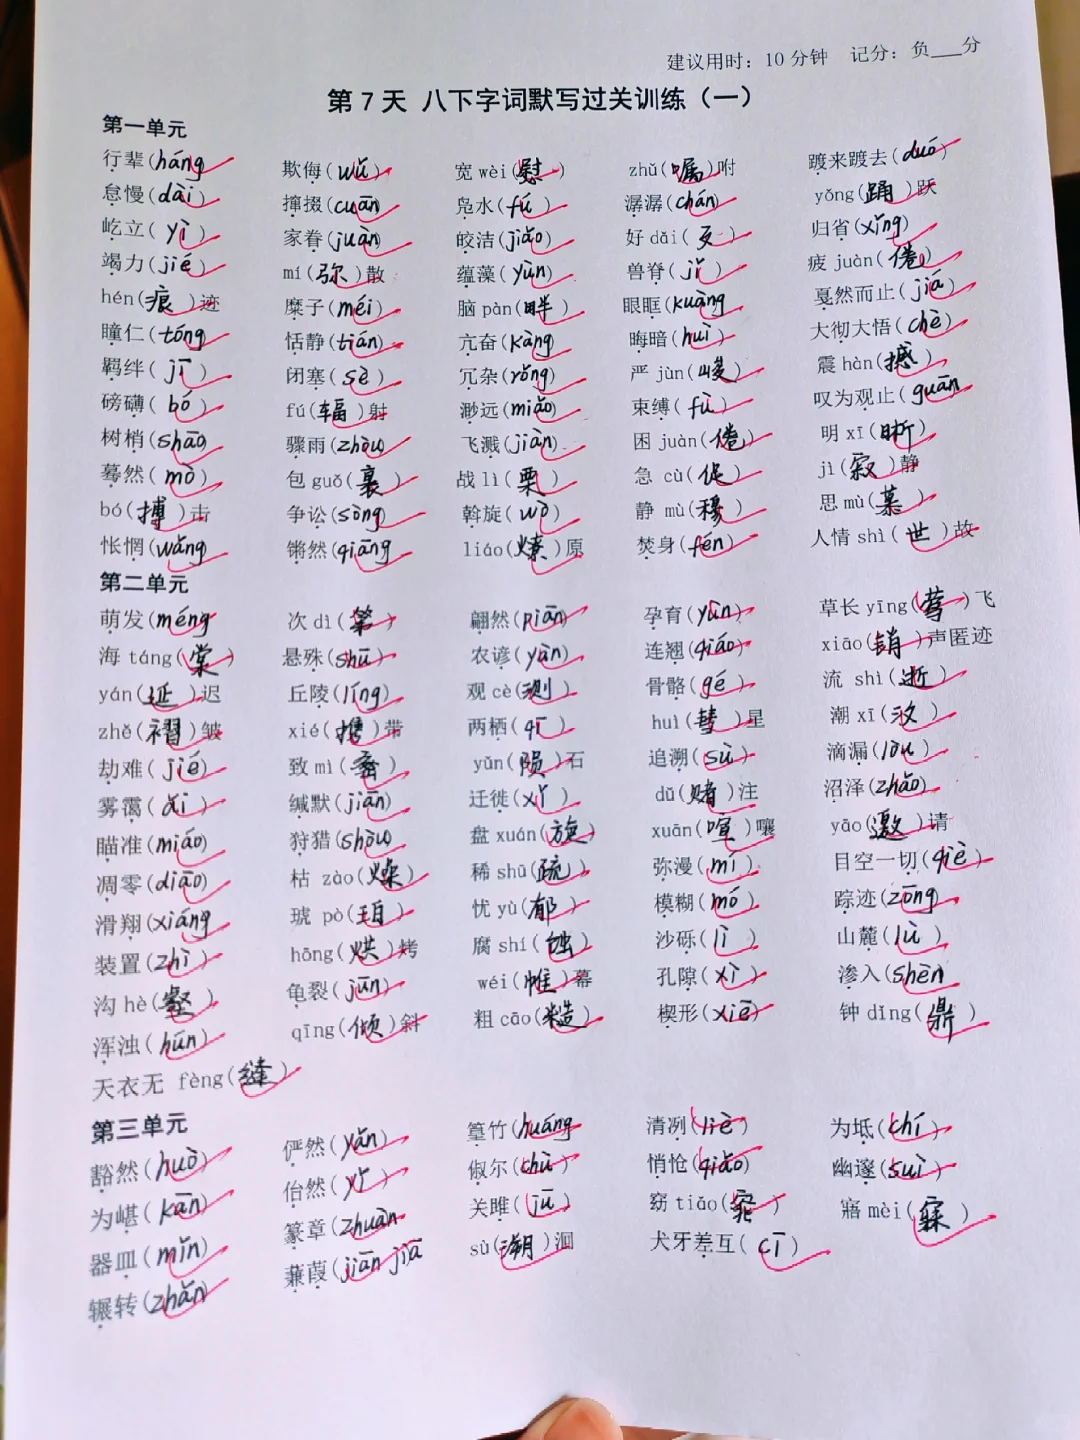 建议用时：10分钟 记分：负___分
第7天 八下字词默写过关训练（一）
第一单元
行辈(háng) 欺侮(wǔ) 宽wèi(慰) zhǔ(嘱)咐 踱来踱去(duó)
怠慢(dài) 撺掇(cuān) 凫水(fú) 潺潺(chán) yǒng(踊)跃
屹立(yì) 家眷(juàn) 皎洁(jiǎo) 好dǎi(歹) 归省(xǐng)
竭力(jié) mí(弥)散 蕴藻(yùn) 兽脊(jǐ) 疲juàn(倦)
hén(痕)迹 糜子(méi) 脑pàn(畔) 眼眶(kuàng) 戛然而止(jiá)
瞳仁(tóng) 恬静(tián) 亢奋(kàng) 晦暗(huì) 大彻大悟(chè)
羁绊(jī) 闭塞(sè) 冗杂(rǒng) 严jùn(峻) 震hàn(撼)
磅礴(bó) fú(辐)射 渺远(miǎo) 束缚(fù) 叹为观止(guān)
树梢(shāo) 骤雨(zhòu) 飞溅(jiàn) 困juàn(倦) 明xī(晰)
蓦然(mò) 包guǒ(裹) 战lì(栗) 急cù(促) jì(寂)静
bó(搏)击 争讼(sòng) 斡旋(wò) 静mù(穆) 思mù(慕)
怅惘(wǎng) 锵然(qiāng) liáo(燎)原 焚身(fén) 人情shì(世)故
第二单元
萌发(méng) 次dì(第) 翩然(piān) 孕育(yùn) 草长yīng(莺)飞
海táng(棠) 悬殊(shū) 农谚(yàn) 连翘(qiáo) xiāo(销)声匿迹
yán(延)迟 丘陵(líng) 观cè(测) 骨骼(gé) 流shì(逝)
zhě(褶)皱 xié(携)带 两栖(qī) huì(彗)星 潮xī(汐)
劫难(jié) 致mì(密) yǔn(陨)石 追溯(sù) 滴漏(lòu)
雾霭(ǎi) 缄默(jiān) 迁徙(xǐ) dǔ(赌)注 沼泽(zhǎo)
瞄准(miáo) 狩猎(shòu) 盘xuán(旋) xuān(喧)嚷 yāo(邀)请
凋零(diāo) 枯zào(燥) 稀shū(疏) 弥漫(mí) 目空一切(qiè)
滑翔(xiáng) 琥pò(珀) 忧yù(郁) 模糊(mó) 踪迹(zōng)
装置(zhì) hōng(烘)烤 腐shí(蚀) 沙砾(lì) 山麓(lù)
沟hè(壑) 龟裂(jūn) wéi(帷)幕 孔隙(xì) 渗入(shèn)
浑浊(hún) qīng(倾)斜 粗cāo(糙) 楔形(xiē) 钟dǐng(鼎)
天衣无fèng(缝)
第三单元
豁然(huò) 俨然(yǎn) 篁竹(huáng) 清冽(liè) 为坻(chí)
为嵁(kān) 佁然(yǐ) 俶尔(chù) 悄怆(qiǎo) 幽邃(suì)
器皿(mǐn) 篆章(zhuàn) 关雎(jū) 窈tiǎo(窕) 寤mèi(寐)
辗转(zhǎn) 蒹葭(jiān jiā) sù(溯)洄 犬牙差互(cī)